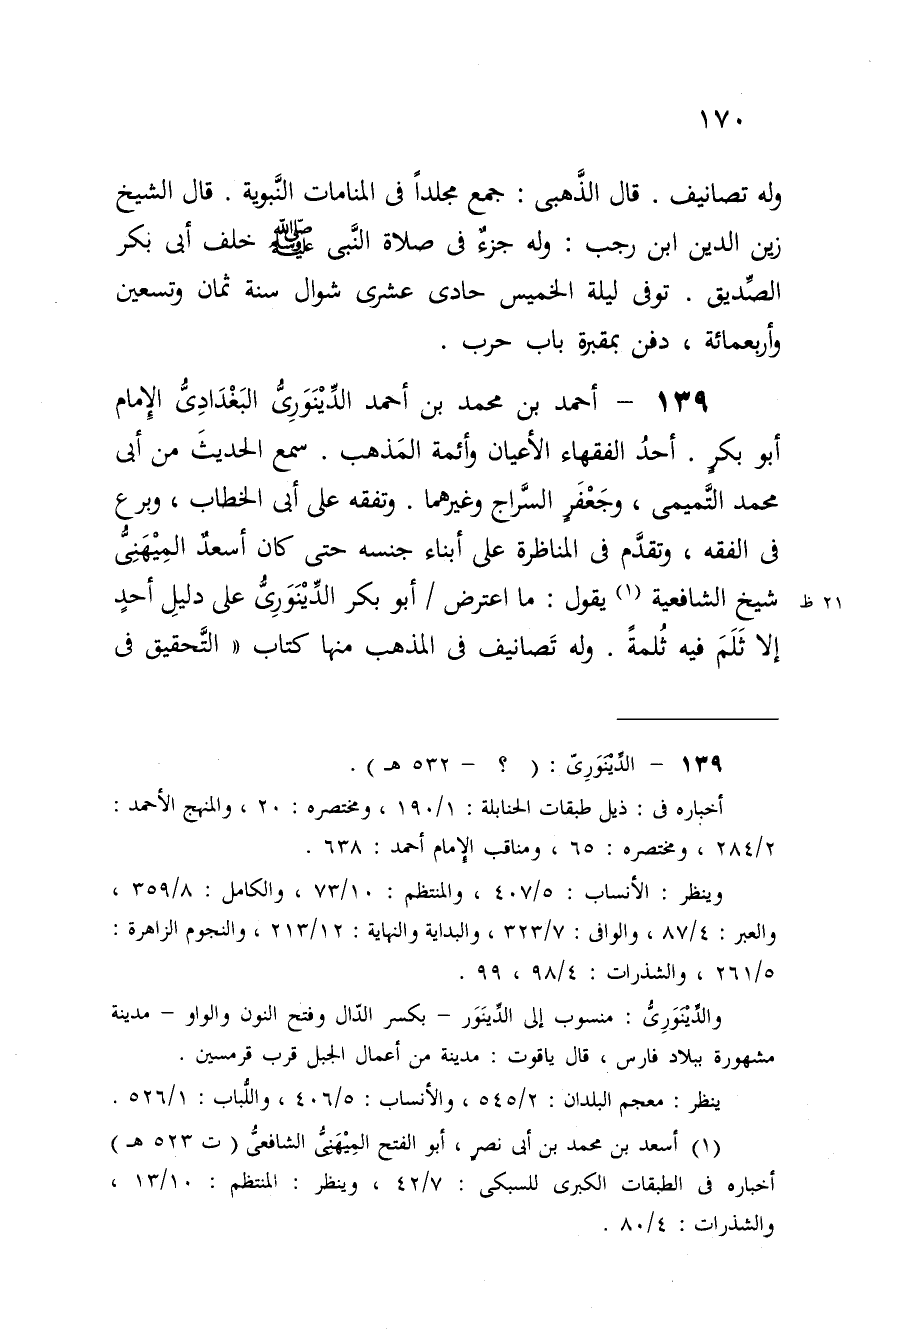 ١٧٠
وله تصانيف . قال الذَّهبى : جمع مجلداً فى المنامات النَّبوية . قال الشيخ
زين الدين ابن رجب : وله جزءٌ فى صلاة النَّبى ﷺ خلف أبى بكر
الصِّديق . توفى ليلة الخميس حادى عشرى شوال سنة ثمان وتسعين
وأربعمائة ، دفن بمقبرة باب حرب .
١٣٩ – أحمد بن محمد بن أحمد الدِّيْنَوَرِىُّ البَغْدَادِىُّ الإِمام
أبو بكرٍ . أحدُ الفقهاء الأعيان وأئمة المَذهب . سمع الحديثَ من أبى
محمد التَّميمى ، وجَعْفَرٍ السَّراج وغيرهما . وتفقه على أبى الخطاب ، وبرع
فى الفقه ، وتقدَّم فى المناظرة على أبناء جنسه حتى كان أسعدُ المِيْهَنِىُّ
شيخ الشافعية (١) يقول : ما اعترض / أبو بكر الدِّيْنَوَرِىُّ على دليلِ أحدٍ ٢١ ظ
إلا ثَلَمَ فيه ثُلمةً . وله تَصانيف فى المذهب منها كتاب « التَّحقيق فى
١٣٩ – الدِّيْنَوَرِىّ : ( ؟ – ٥٣٢ هـ ) .
أخباره فى : ذيل طبقات الحنابلة : ١٩٠/١ ، ومختصره : ٢٠ ، والمنهج الأحمد :
٢٨٤/٢ ، ومختصره : ٦٥ ، ومناقب الإمام أحمد : ٦٣٨ .
وينظر : الأنساب : ٤٠٧/٥ ، والمنتظم : ٧٣/١٠ ، والكامل : ٣٥٩/٨ ،
والعبر : ٨٧/٤ ، والوافى : ٣٢٣/٧ ، والبداية والنهاية : ٢١٣/١٢ ، والنجوم الزاهرة :
٢٦١/٥ ، والشذرات : ٩٨/٤ ، ٩٩ .
والدِّيْنَوَرِىُّ : منسوب إلى الدِّينَوَر – بكسر الدّال وفتح النون والواو – مدينة
مشهورة ببلاد فارس ، قال ياقوت : مدينة من أعمال الجبل قرب قرمسين .
ينظر : معجم البلدان : ٥٤٥/٢ ، والأنساب : ٤٠٦/٥ ، واللُّباب : ٥٢٦/١ .
(١) أسعد بن محمد بن أبى نصرٍ ، أبو الفتح المِيْهَنِىُّ الشافعىُّ ( ت ٥٢٣ هـ )
أخباره فى الطبقات الكبرى للسبكى : ٤٢/٧ ، وينظر : المنتظم : ١٣/١٠ ،
والشذرات : ٨٠/٤ .